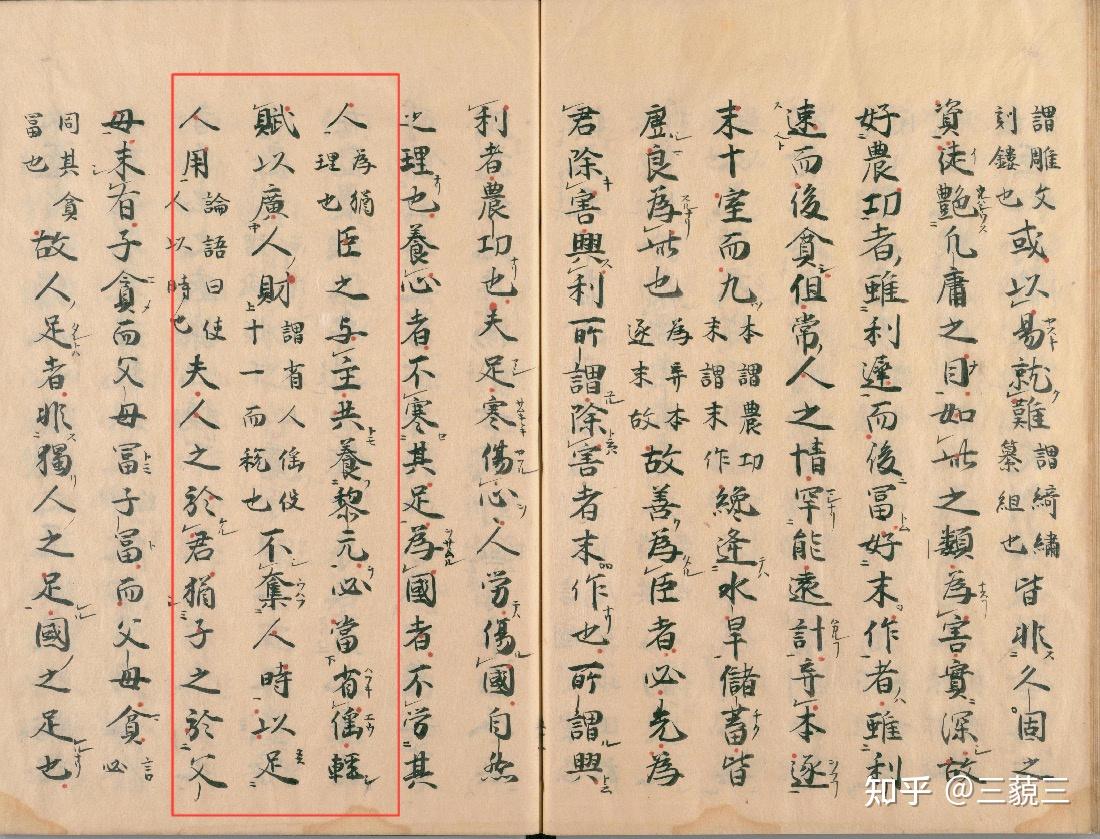 謂雕文刻鏤也或以易就難謂綺繡纂組也皆非久固之
資徒艷凡庸之目如此之類為害實深故
好農功者雖利遲而後冨好末作者雖利
速而後貧但常人之情罕能遠計弃本逐
末十室而九本謂農功末謂末作纔逢水旱儲蓄皆
虛良為此也為弃本逐末故故善為臣者必先為
君除害興利所謂除害者末作也所謂興
利者農功也夫足寒傷心人勞傷國自然
之理也養心者不寒其足為國者不勞其
人為猶理也臣之与主共養黎元必當省徭輕
賦以廣人財謂省人徭役十一而稅也不奪人時以足
人用論語曰使人以時也夫人之於君猶子之於父
母未有子貧而父母冨子冨而父母貧言必
同其貧冨也故人足者非獨人之足國之足也
知乎 @三藐三